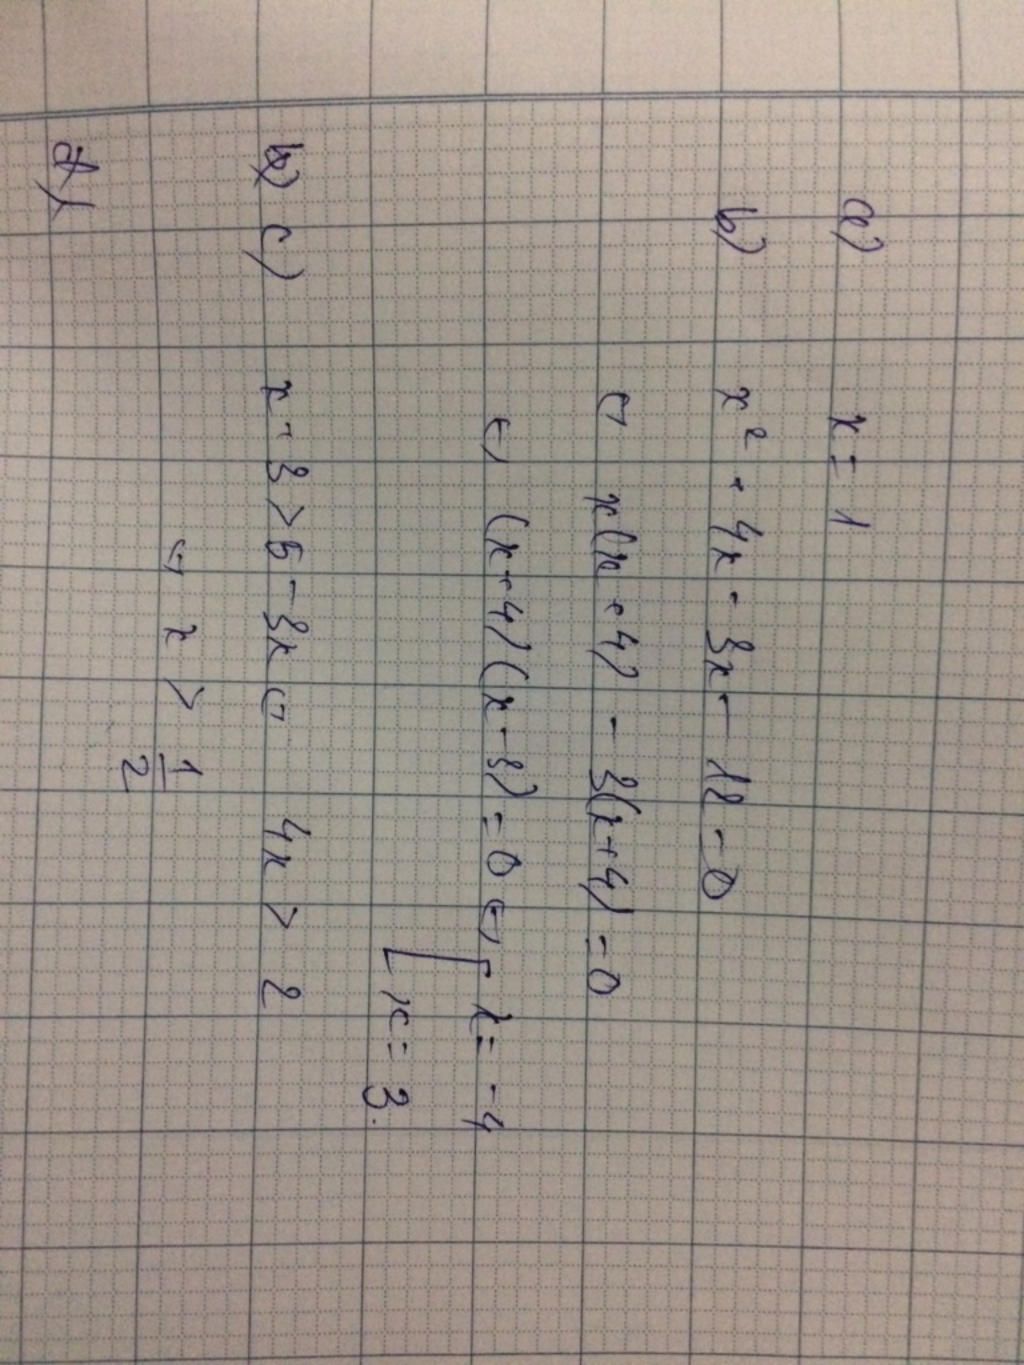 a) x = 1
b) x² + 4x - 3x - 12 = 0
⇔ x(x + 4) - 3(x+4) = 0
⇔ (x+4)(x-3) = 0 ⇔ [ x = -4
x = 3.
c) x - 3 > 5 - 3x ⇔ 4x > 2
⇔ x > 1/2
d)